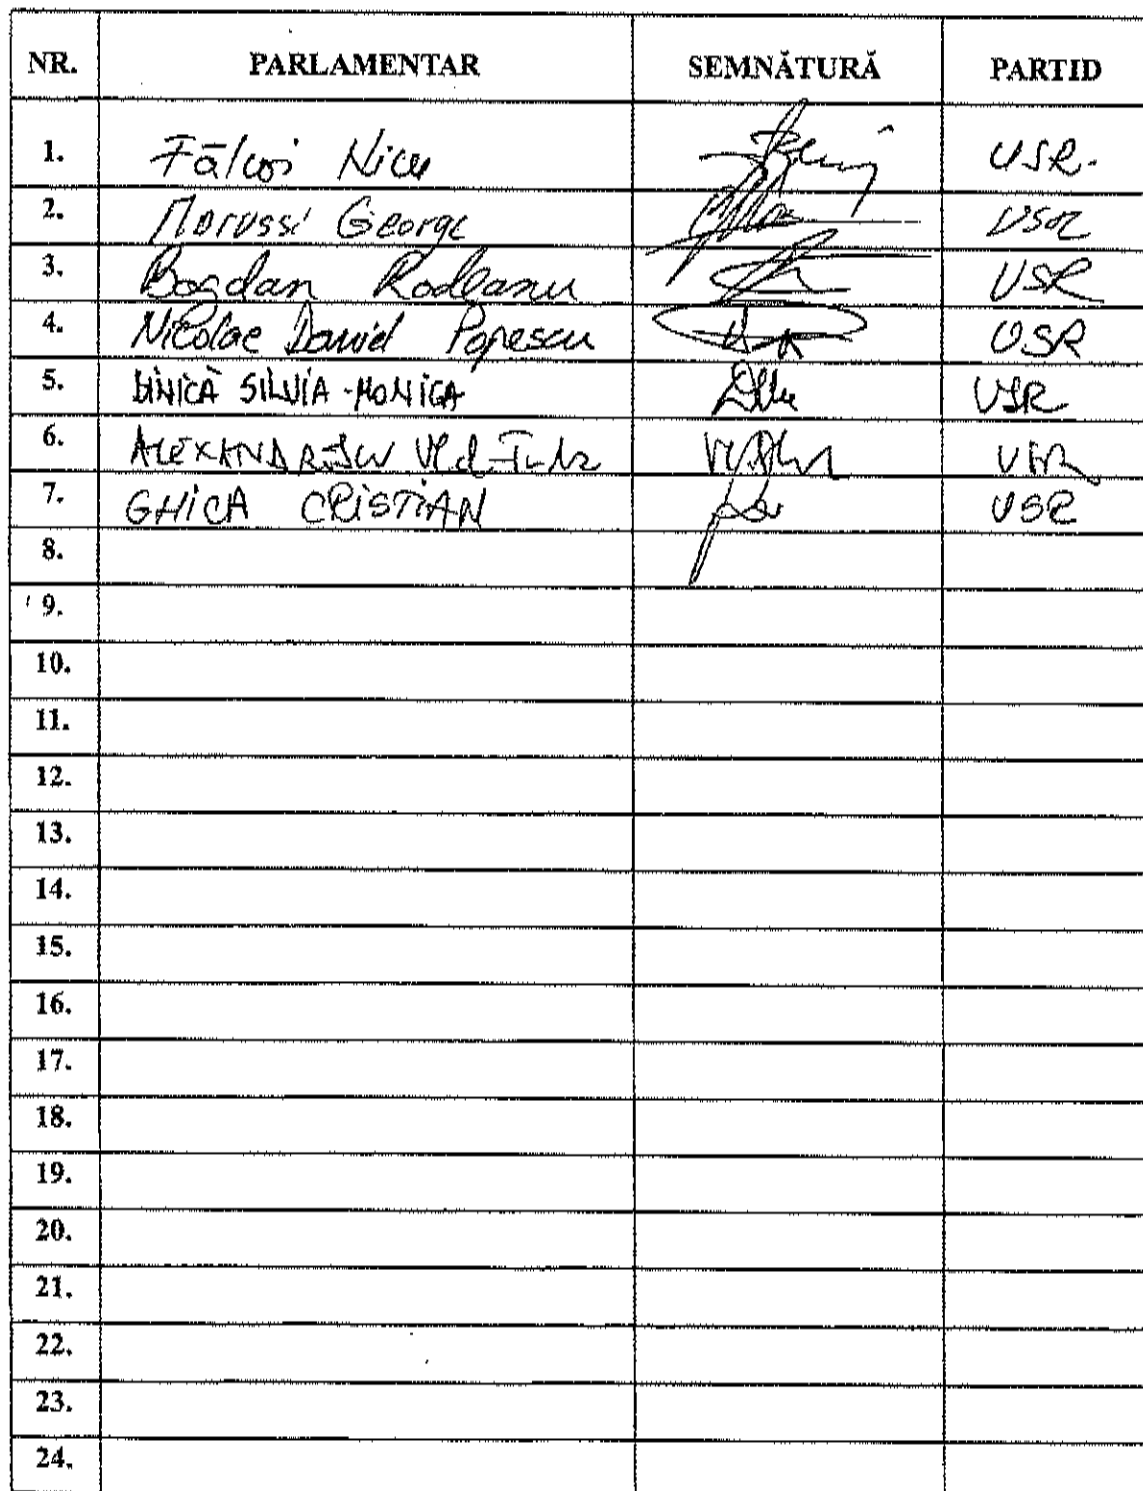 NR. PARLAMENTAR SEMNĂTURĂ PARTID
1. Fălcoi Nicu USR.
2. Marussi George USR
3. Bogdan Rodeanu USR
4. Nicolae Daniel Popescu USR
5. DINICĂ SILVIA-MONICA USR
6. ALEXANDRESCU USR
7. GHICA CRISTIAN USR
8.
9.
10.
11.
12.
13.
14.
15.
16.
17.
18.
19.
20.
21.
22.
23.
24.